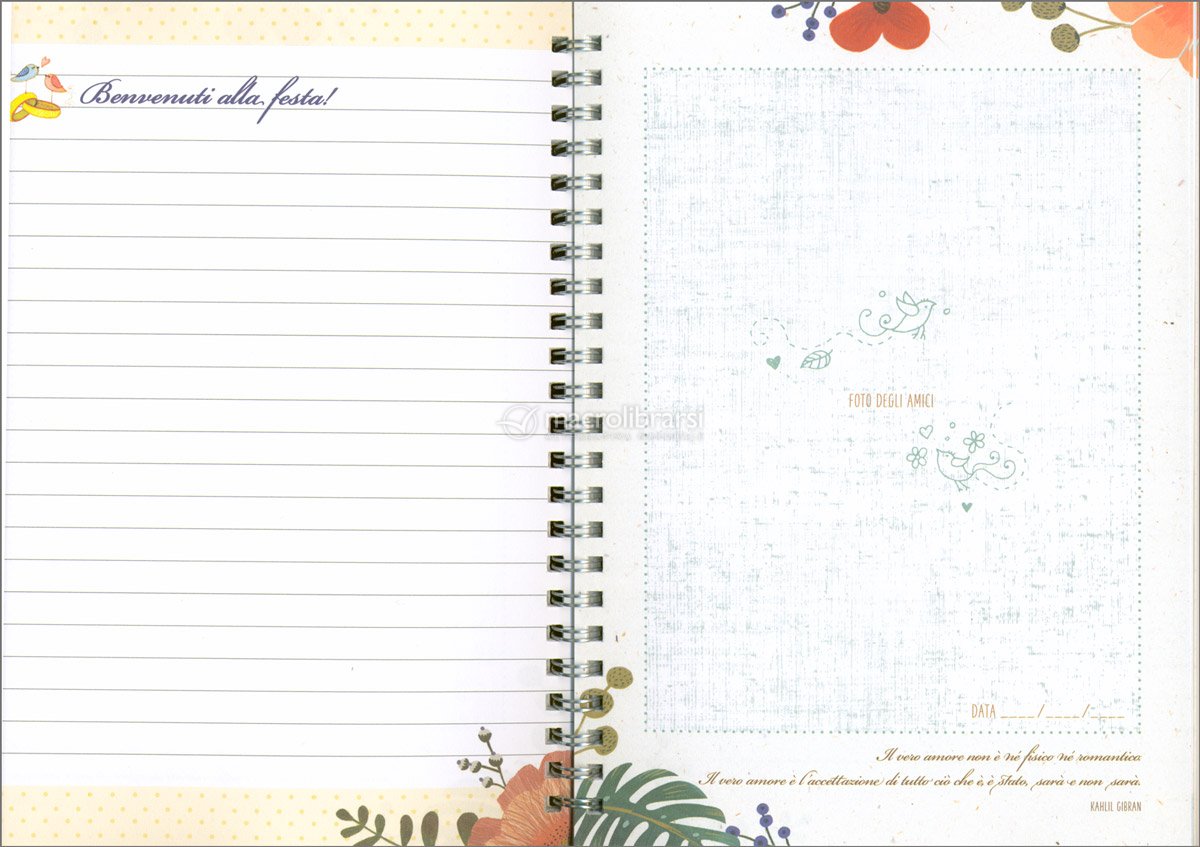 Benvenuti alla festa!
macrolibrarsi
FOTO DEGLI AMICI
DATA ____/____/____
Il vero amore non è né fisico né romantico.
Il vero amore è l'accettazione di tutto ciò che è, è stato, sarà e non sarà.
KAHLIL GIBRAN